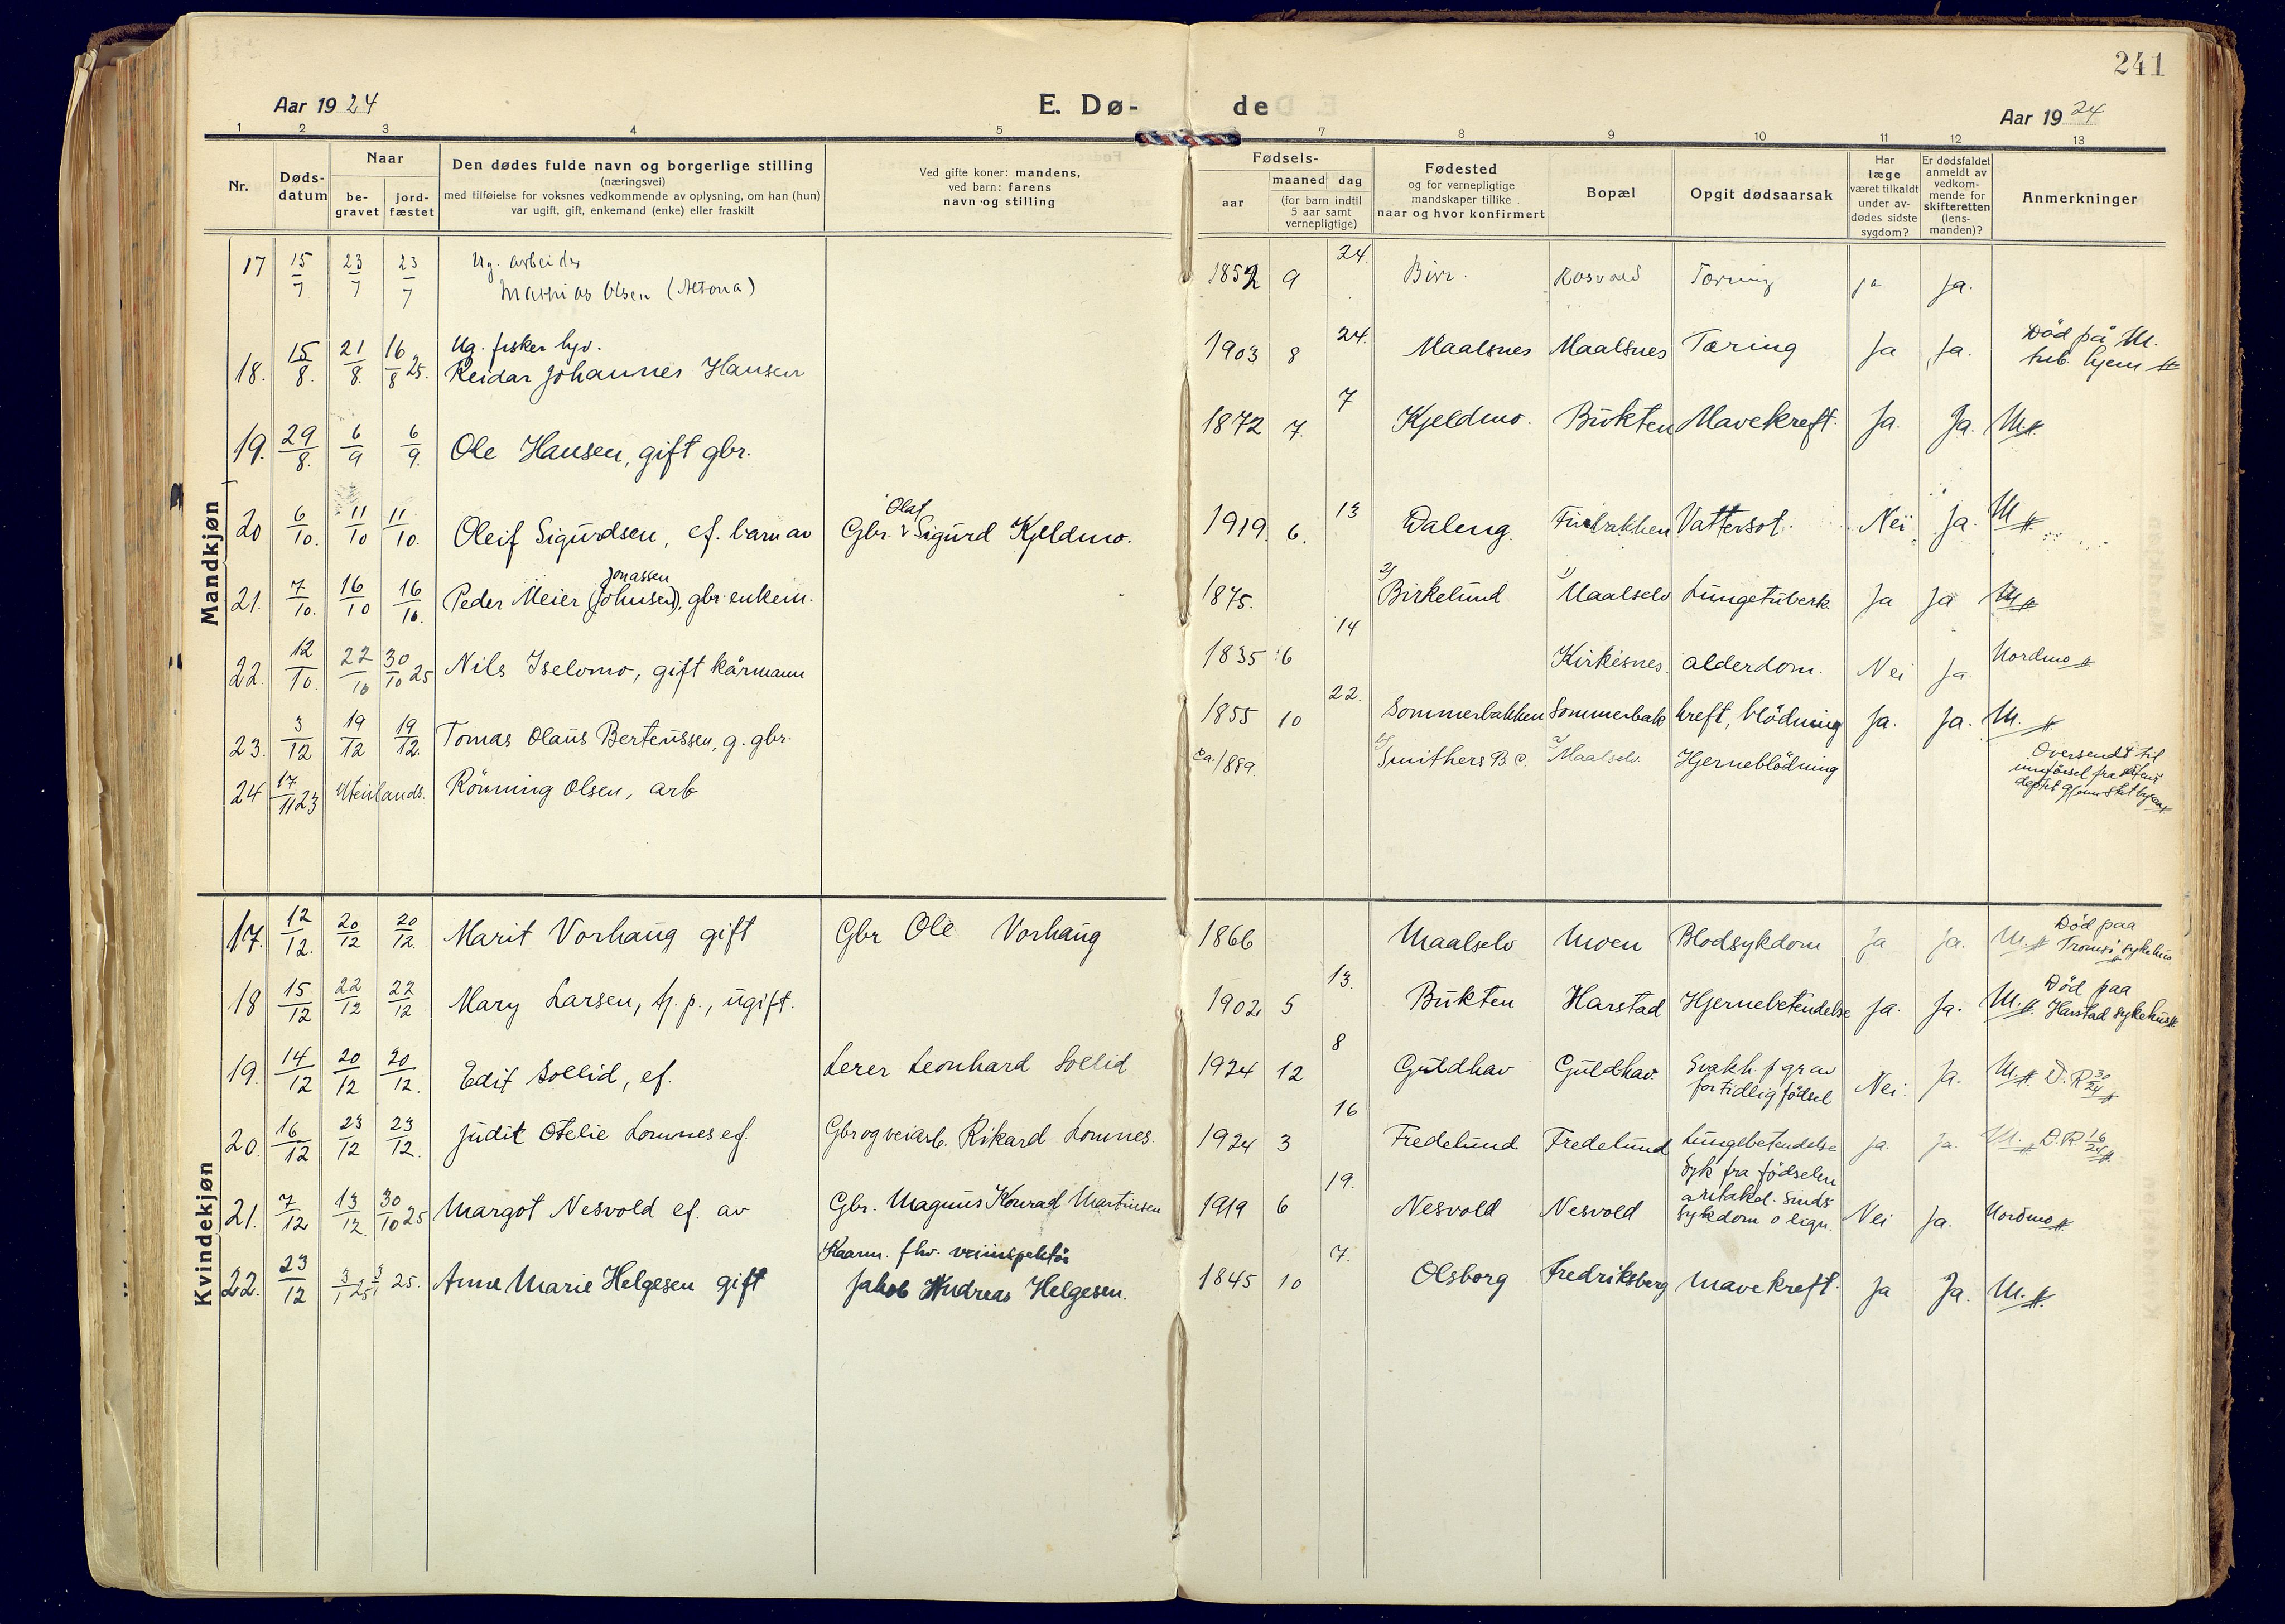 241
Aar 1924
E. Dø-
de
Aar 1924
1 2 3 4 5 7 8 9 10 11 12 13
Nr.
Døds-
datum
Naar
be-
gravet
jord-
fæstet
Den dødes fulde navn og borgerlige stilling
(næringsvei)
med tilføielse for voksnes vedkommende av oplysning, om han (hun)
var ugift, gift, enkemand (enke) eller fraskilt
Ved gifte koner: mandens,
ved barn: farens
navn og stilling
Fødsels-
aar
maaned dag
(for barn indtil
5 aar samt
vernepligtige)
Fødested
og for vernepligtige
mandskaper tillike
naar og hvor konfirmert
Bopæl
Opgit dødsaarsak
Har
læge
været tilkaldt
under av-
dødes sidste
sygdom?
Er dødsfaldet
anmeldt av
vedkom-
mende for
skifteretten
(lens-
manden)?
Anmerkninger
Mandkjøn
17 15/7 23/7 23/7 Ug. arbeider
Mathias Olsen (Altona) 1852 9 24. Rosvold Tæring ja ja.
18. 15/8. 21/8. 16/8 25. Ug. fisker
Reidar Johannes Hansen 1903 8 24. Maalsnes Maalsnes Tæring Ja Ja. Død på M.
tub. hjem
19. 29/8. 6/9 6/9. Ole Hansen, gift gbr. 1872 7. 7 Kjeldmo. Bukten Mavekreft. Ja. Ja. M.
20 6/10. 11/10 11/10. Oleif Sigurdsen, ef. barn av Gbr. Olaf Sigurd Kjeldmo. 1919. 6. 13 Daleng. Furbakken Vattersot. Nei Ja. M
21. 7/10. 16/10 16/10. Peder Meier (Johnsen) Jonassen, gbr. enkem. 1875. 2) Birkelund 1) Maalselv Lungetuberk. Ja Ja M
22. 12/10. 22/10 30/10 25 Nils Iselomo, gift kårmann 1835 6 14 Kirkesnes. alderdom. Nei Ja. Nordmo
23. 3/12 19/12 19/12. Tomas Olaus Berteussen, g. gbr. 1855 10 22. Sommerbakken Sommerbak kreft, blödning Ja. Ja. M.
24 17/11 23 Utenlands. Rönning Olsen, arb ca. 1889. Smithers B C. Maalselv. Hjerneblödning Oversendt til
innførsel fra
Kvindekjøn
17. 12/12. 20/12 20/12. Marit Vorhaug gift Gbr Ole Vorhaug 1866 Maalselv Moen Blodsykdom ja ja. M. Død paa
Tromsö sykehus
18 15/12 22/12 22/12 Mary Larsen, tj. p., ugift. 1902 5 13. Bukten Harstad Hjernebetendelse Ja. Ja. M. Död paa
Harstad sykehus
19. 14/12 20/12 20/12. Edit Sollid, ef. Lerer Leonhard Sollid 1924 12 8 Guldhav Guldhav. Svakh. p gr av
for tidlig födsel Nei. Ja. M. D. R 30/24
20. 16/12 23/12 23/12. Judit Otelie Lomnes ef. Gbr og veiarb. Rikard Lomnes. 1924 3 16 Fredelund Fredelund Lungebetendelse ja. ja. M. D. R. 16/24
21. 7/12 13/12. 30/10 25 Margot Nesvold ef. av Gbr. Magnus Konrad Martinsen 1919 6 19. Nesvold Nesvold Syk fra födselen
sinds
sykdom o lign. Nei Ja. Nordmo
22. 23/12 3/1 25 3/1 25. Anne Marie Helgesen gift Kaarm. fhv. veiinspektör
Jakob Andreas Helgesen. 1845 10 7. Olsborg Fredriksberg Mavekreft. Ja Ja. M.